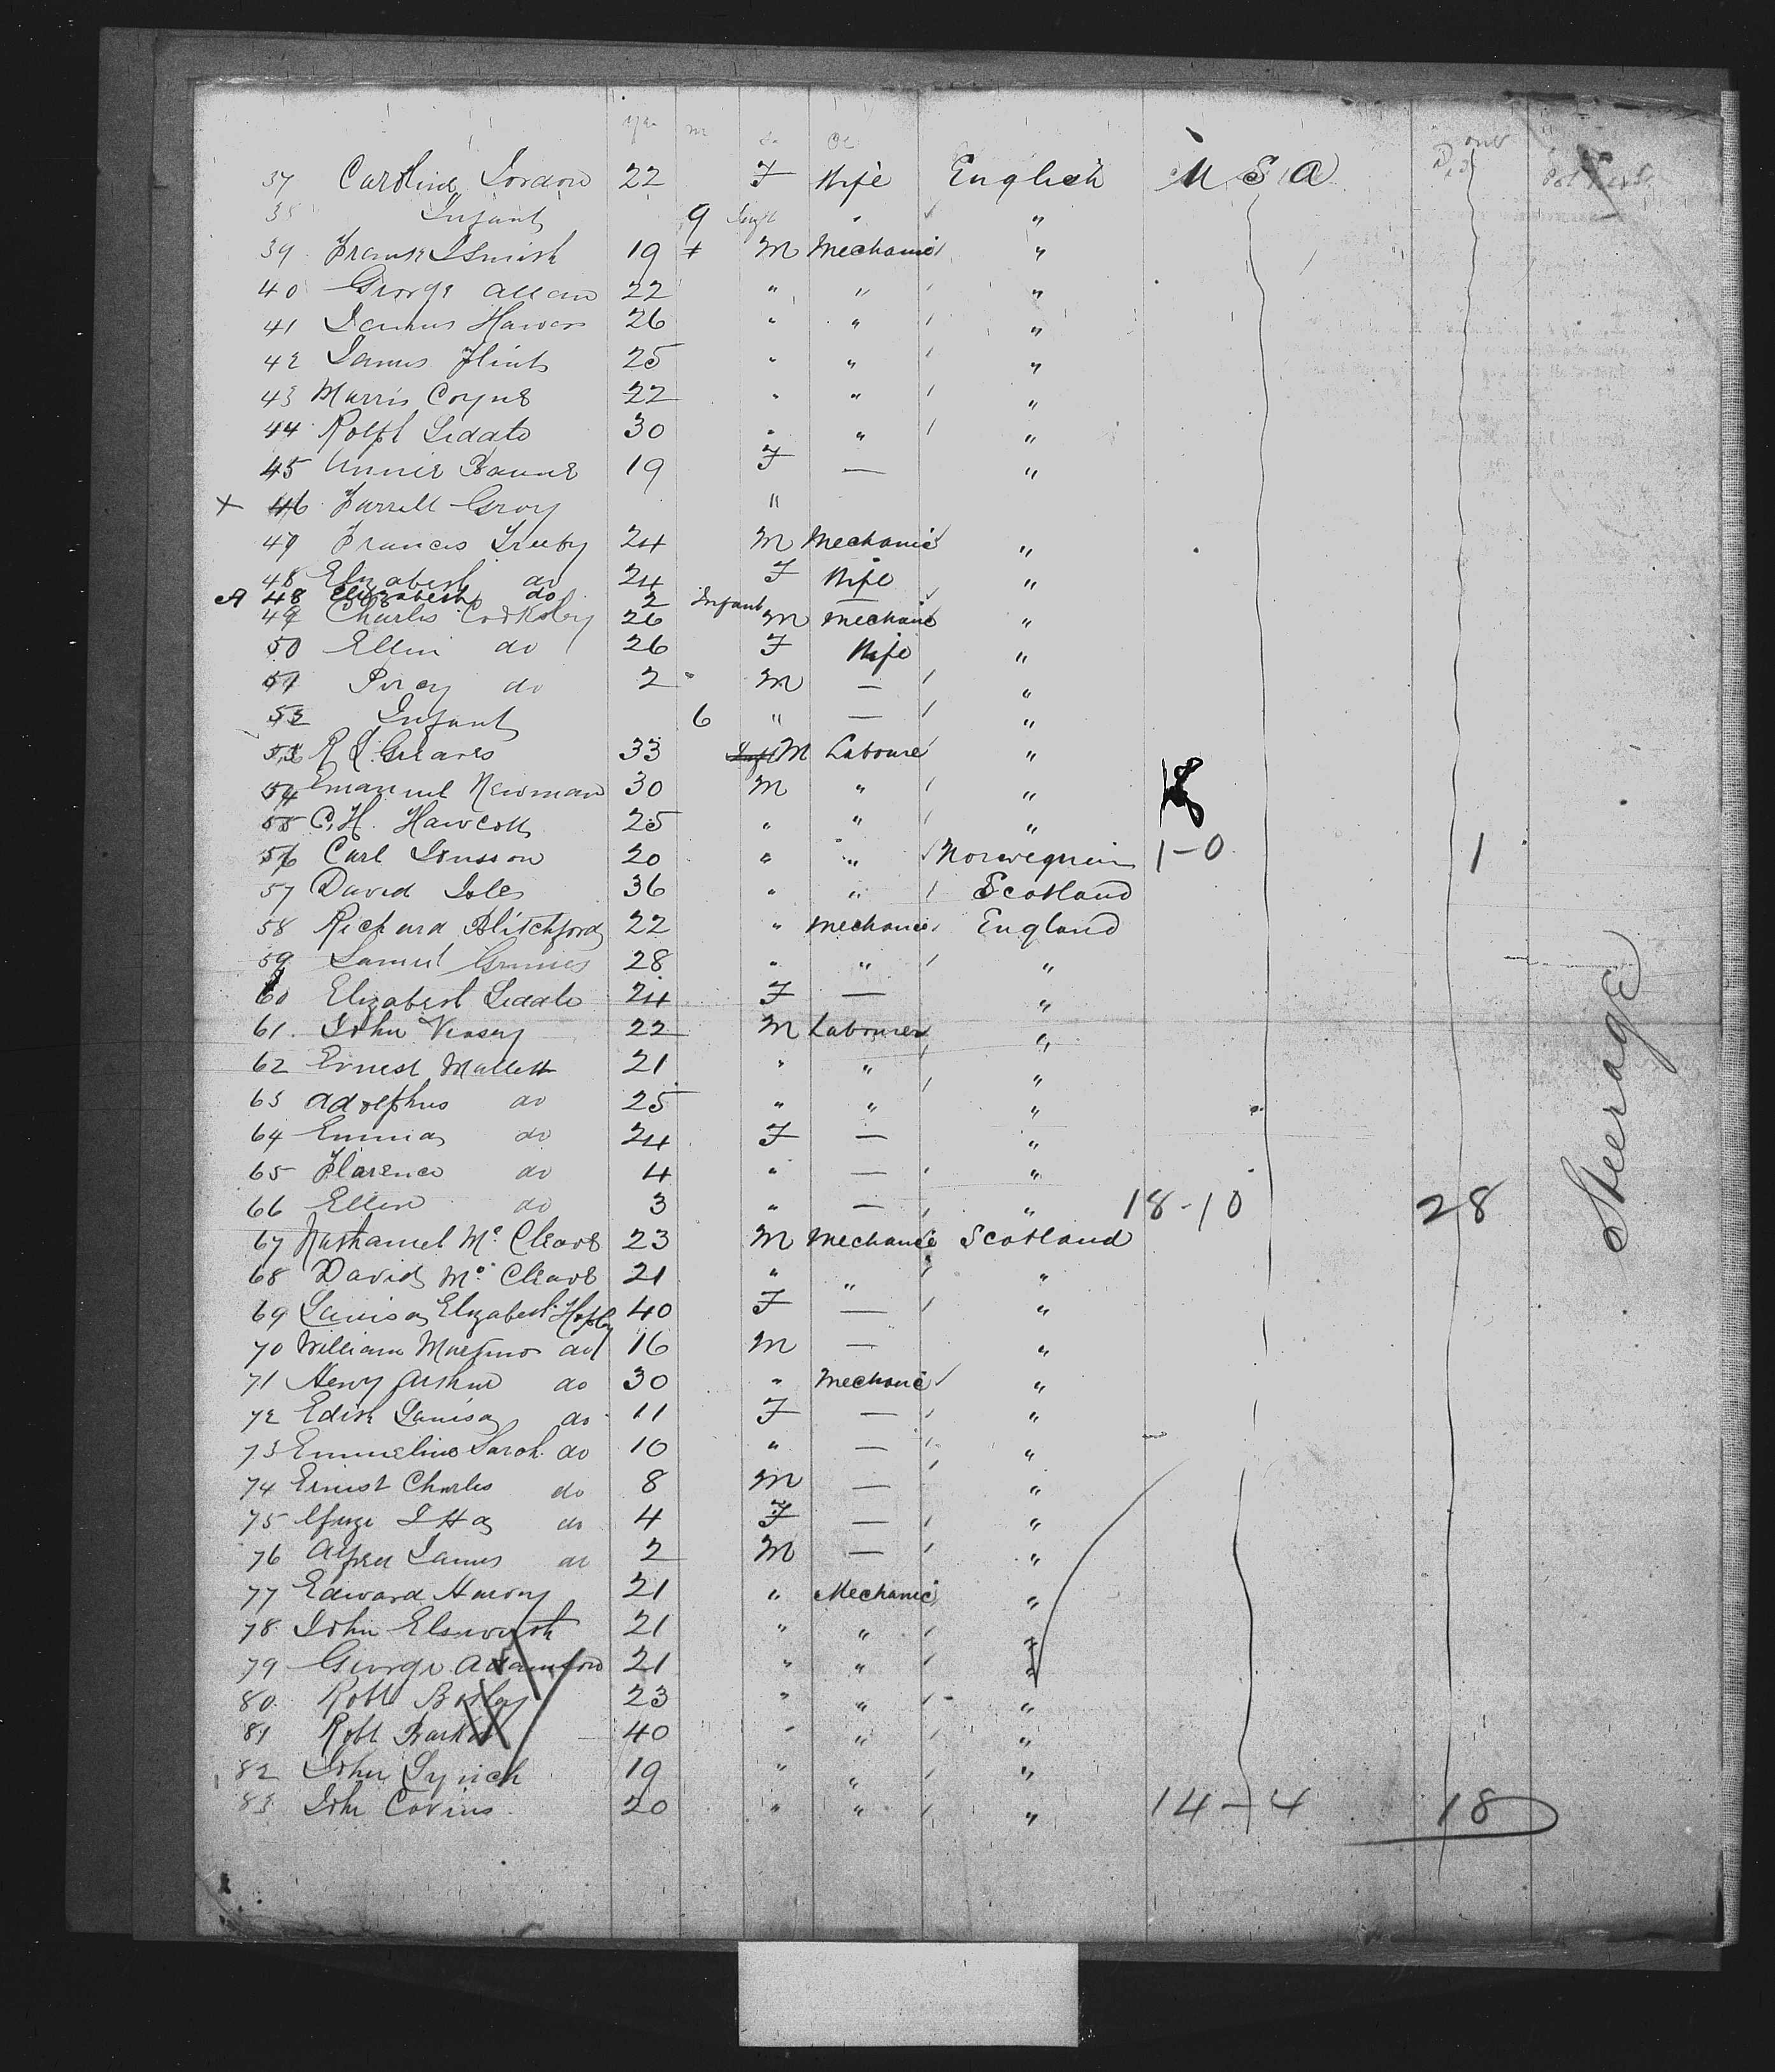 yrs m Sx Oc
37 Caroline Jordon 22 F Wife English U S A
38 Infant 9 Inft " "
39 Frank J Smith 19 + M Mechanic "
40 George Allan 22 " " "
41 James Hawes 26 " " "
42 James Flint 25 " " "
43 Morris Coyne 22 " " "
44 Rolph Liddle 30 " " "
45 Annie Bourne 19 F — "
X 46 Farrell Gray "
47 Francis Treeby 24 M Mechanic "
48 Elizabeth do 24 F Wife "
A 48 Elizabeth do 2 Infant —
49 Charles Cooksley 26 M Mechanic "
50 Ellen do 26 F Wife "
51 Percy do 2 M — "
52 Infant 6 " — "
53 R J Greaves 33 M Laboure "
54 Emanuel Newman 30 M " "
55 C. H. Hawcott 25 " " "
56 Carl Jonsson 20 " " Norwegian 1-0 1
57 David Isles 36 " " Scotland
58 Richard Blitchford 22 " Mechanic England
59 Samuel Grimes 28 " " "
60 Elizabeth Liddle 24 F — "
61 John Veasey 22 M Labourer "
62 Ernest Mallett 21 " " "
63 Adolphus do 25 " " "
64 Emma do 24 F — "
65 Florence do 4 " — "
66 Ellen do 3 " — " 18-10 28
67 Nathaniel Mc Cleave 23 M Mechanic Scotland
68 David Mc Cleave 21 " " "
69 Louisa Elizabeth 40 F — "
70 William do 16 M — "
71 Henry Arthur do 30 " Mechanic "
72 Edith Louisa do 11 F — "
73 Emmeline Sarah do 10 " — "
74 Ernest Charles do 8 M — "
75 do 4 F — "
76 Alfred James do 2 M — "
77 Edward Harvey 21 " Mechanic "
78 John Elsworth 21 " " "
79 George Adamson 21 " " "
80 Robt Bosley 23 " " "
81 Robt Barker 40 " " "
82 John Lynch 19 " " "
83 John Covins 20 " " " 14-4 18
Steerage